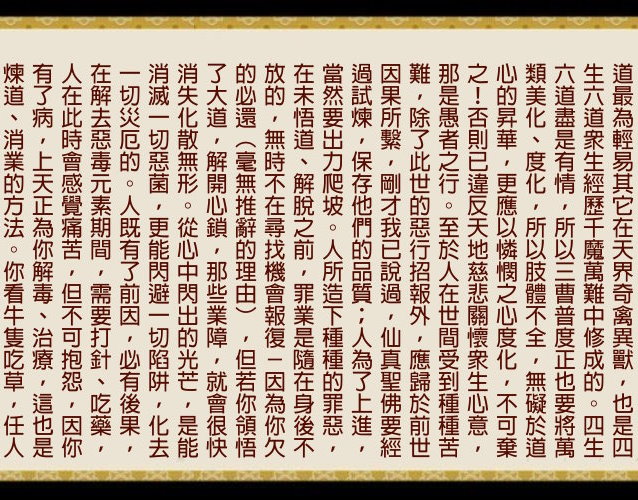 道最為輕易其它在天界奇禽異獸，也是四
生六道眾生經歷千魔萬難中修成的。四生
六道盡是有情，所以三曹普度正也要將萬
類美化、度化，所以肢體不全，無礙於道
心的昇華，更應以憐憫之心度化，不可棄
之！否則已違反天地慈悲關懷眾生心意，
那是愚者之行。至於人在世間受到種種苦
難，除了此世的惡行招報外，應歸於前世
因果所繫，剛才我已說過，仙真聖佛要經
過試煉，保存他們的品質；人為了上進，
當然要出力爬坡。人所造下種種的罪惡，
在未悟道、解脫之前，罪業是隨在身後不
放的，無時不在尋找機會報復－因為你欠
的必還（毫無推辭的理由），但若你領悟
了大道，解開心鎖，那些業障，就會很快
消失化散無形。從心中閃出的光芒，是能
消滅一切惡菌，更能閃避一切陷阱，化去
一切災厄的。人既有了前因，必有後果，
在解去惡毒元素期間，需要打針、吃藥，
人在此時會感覺痛苦，但不可抱怨，因你
有了病，上天正為你解毒、治療，這也是
煉道、消業的方法。你看牛隻吃草，任人